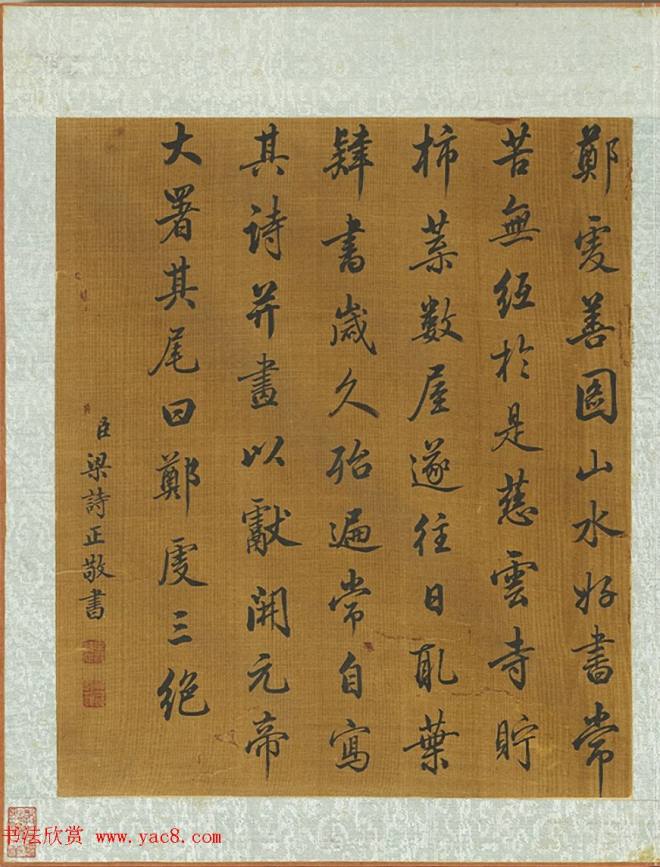 鄭虔善圖山水好書常
苦無紙於是慈雲寺貯
柿葉數屋遂往日取葉
肄書歲久殆遍常自寫
其詩并畫以獻開元帝
大署其尾曰鄭虔三絕
臣梁詩正敬書
书法欣赏 www.yac8.com